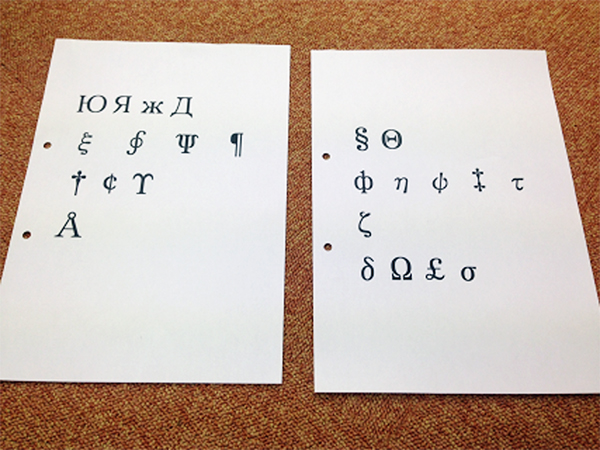 Ю Я ж Д
ξ ∮ Ψ ¶
† ¢ ϒ
Å
§ Θ
ф η ψ ‡ τ
ζ
δ Ω £ σ